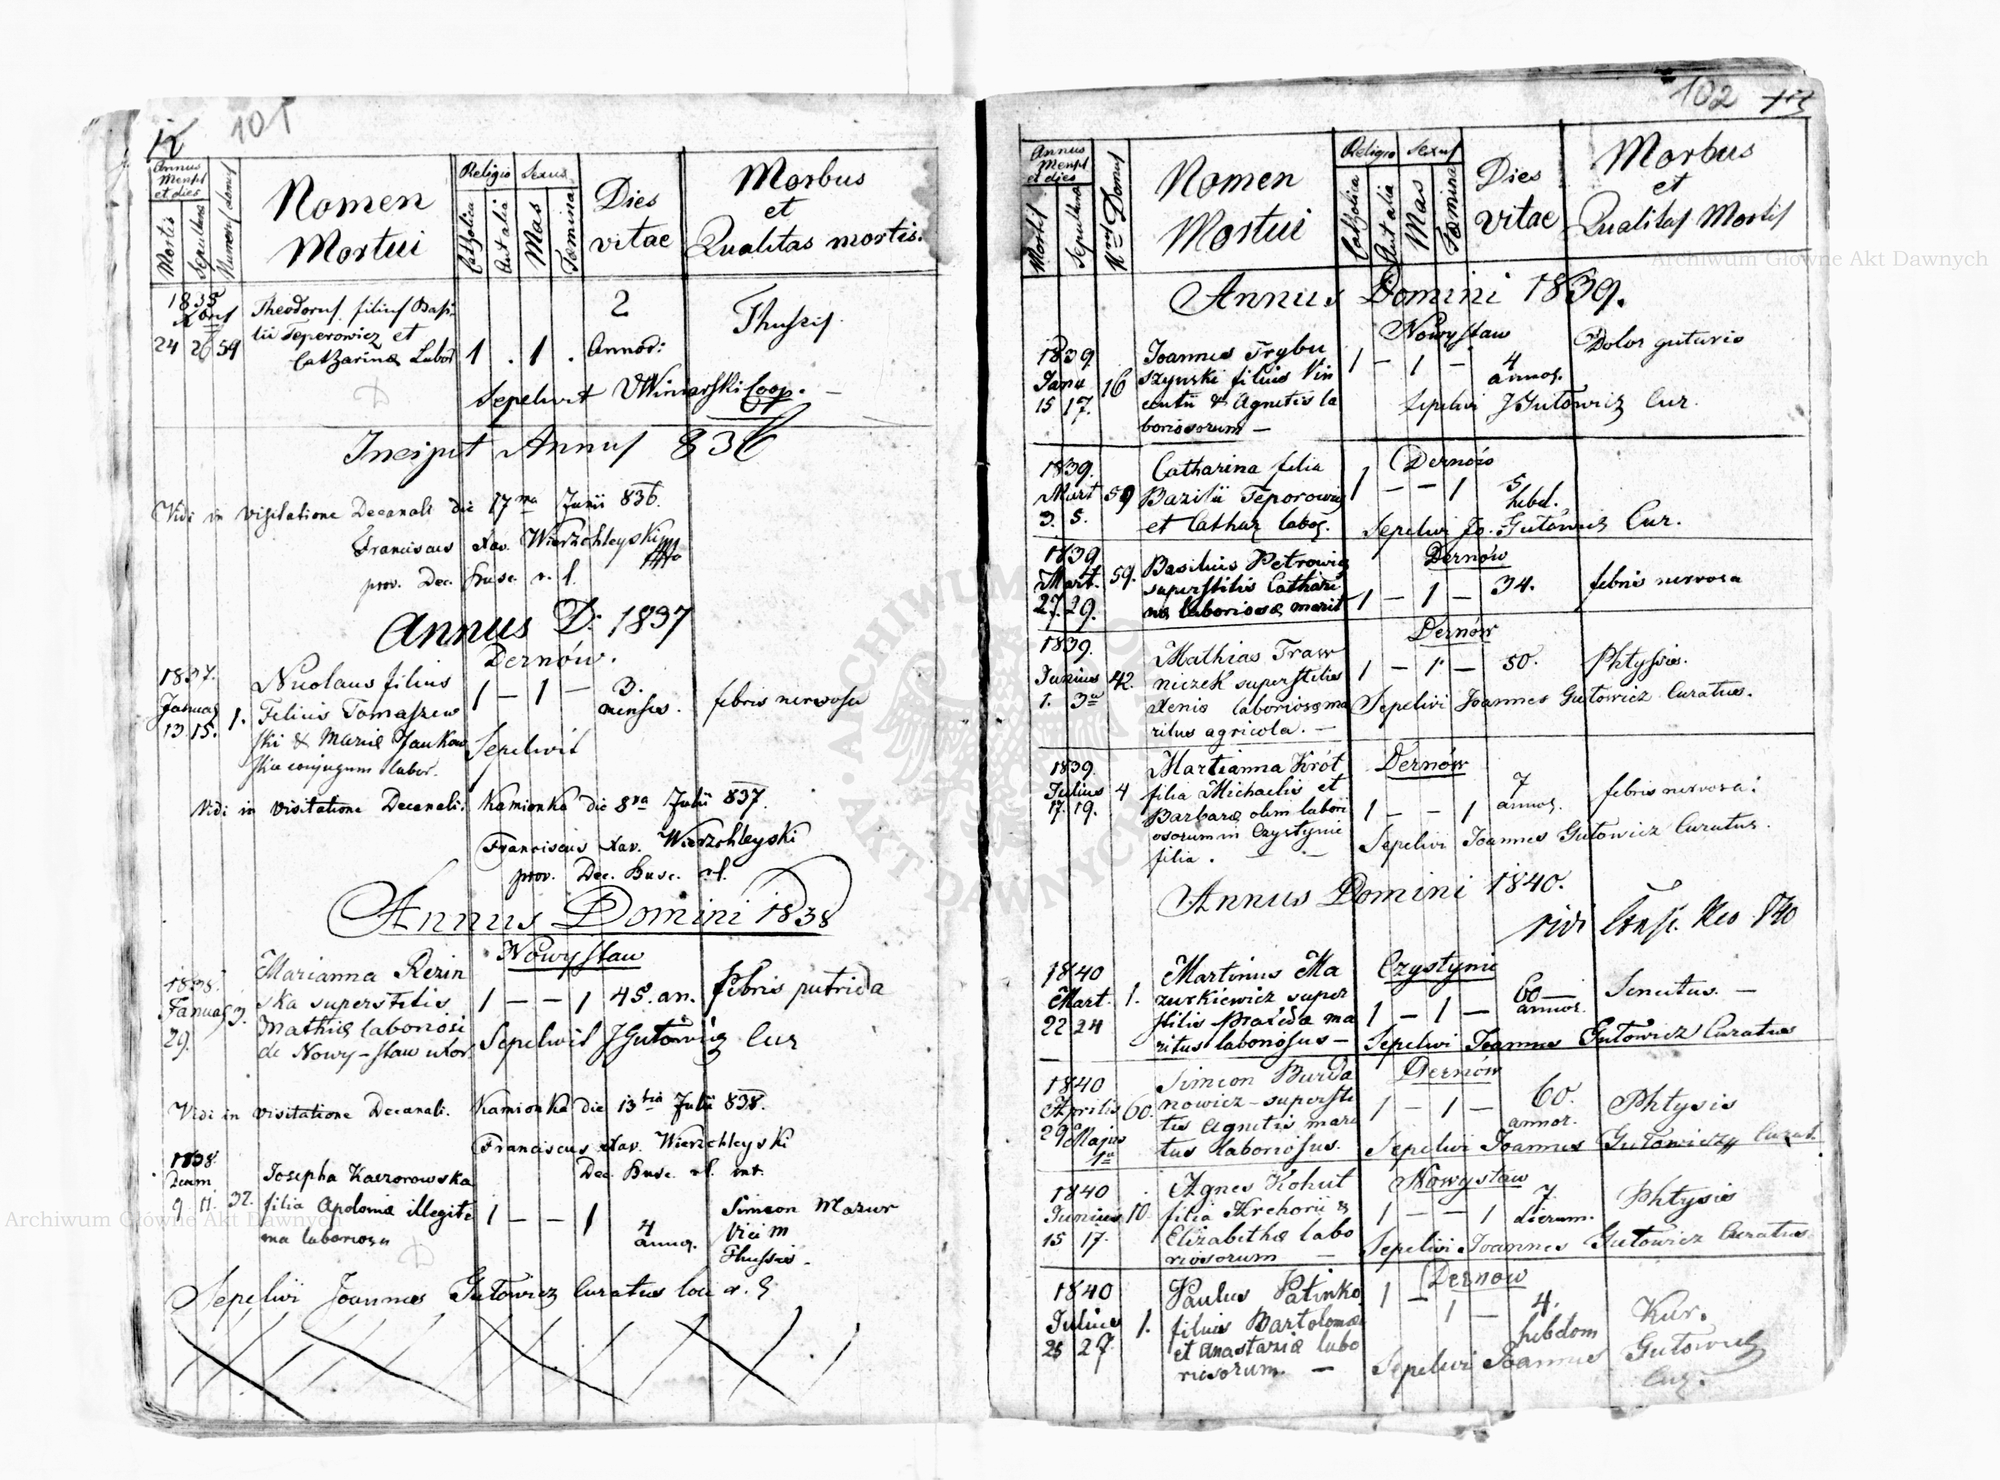 12 101
Annus Mensis et dies
Mortis
Sepulturae
Numerus domus
Nomen Mortui
Religio
Catholica
Aut alia
Sexus
Mas
Foemina
Dies vitae
Morbus et Qualitas mortis.
1835
24 26 59
Theodorus filius Basi-
lii Teperowicz et
Catharinae Labor
1 . 1 .
2
Annor:
Thussis.
Sepelivit Winiarski Coop.
Incipit Annus 836
Vidi in visitatione Decanali die 17ma Junii 836.
Franciscus Xav. Wierzchleyski
prov. Dec. Busc. r. l.
Annus D: 1837
Dernów.
1837.
Januar
13. 15. 1.
Nicolaus filius
Felicis Tomaszew
ski & Mariae Jankow
skie conjugum labor.
1 – 1 –
3.
menses.
febris nervosa
Sepelivit
Vidi in visitatione Decanali. Kamionka die 8va Julii 837.
Franciscus Xav. Wierzchleyski
prov. Dec. Busc. r. l.
Annus Domini 1838
Nowystaw
1838.
Januar 3.
29.
Marianna Rezin
ska superstitis
Mathiae laboriosi
de Nowy-staw uxor
1 – – 1
45. an.
febris putrida
Sepelivit J Gutowicz Cur
Vidi in visitatione Decanali. Kamionka die 13tia Julii 838.
Franciscus Xav. Wierzchleyski
Dec. Busc. r. l. mt.
1838.
Decem
9 11 32.
Josepha Kaczorowska
filia Apoloniae illegiti
ma laboriosa
1 – – 1
4
annor.
Simeon Mazur
Vici M
Thussis.
Sepelivi Joannes Gutowicz Curatus loci
102 113
Annus Mensis et dies
Mortis
Sepulturae
Nrus Domus
Nomen Mortui
Religio
Catholica
Aut alia
Sexus
Mas
Foemina
Dies vitae
Morbus et Qualitas Mortis
Annus Domini 1839.
Nowystaw
1839
Janu 16
15 17.
Joannes Trybu
szynski filius Vin
centii & Agnetis la
boriosorum –
1 – 1 –
4
annor.
Dolor guturis
Sepelivi J Gutowicz Cur.
Dernów
1839.
Mart 59
3. 5.
Catharina filia
Bazilii Teporowicz
et Cathar labor.
1 – – 1
5
hebd.
Sepelivi Jo. Gutowicz Cur.
Dernów
1839
Mart. 59.
27. 29.
Basilius Petrowicz
superstitis Cathari
nae laboriosae marit
1 – 1 –
34.
febris nervosa
Dernów
1839.
Junius 42.
1. 3a
Mathias Traw
niczek superstitis
Xenia laboriosa ma
ritus agricola. –
1 – 1 –
50.
Phtyssis.
Sepelivi Joannes Gutowicz Curatus.
Dernów
1839.
Julius 4
17. 19.
Martianna Król
filia Michaelis et
Barbarae olim labori
osorum in Czystynie
filia. – –
1 – – 1
7
annor.
febris nervosa.
Sepelivi Joannes Gutowicz Curatus.
Annus Domini 1840.
vidi 840
Czystynie
1840
Mart. 1.
22 24
Martinus Ma
zurkiewicz super
stitis ma
ritus laboriosus –
1 – 1 –
60
annor.
Senectus. –
Sepelivi Joannes Gutowicz Curatus
Dernów
1840
Aprilis 60.
29 Majus
1a
Simeon Burda
nowicz – supersti
tis Agnetis mari
tus laboriosus.
1 – 1 –
60.
annor.
Phtysis
Sepelivi Joannes Gutowicz Curat.
Nowystaw
1840
Junius 10.
15 17.
Agnes Kohut
filia Hrehorii &
Elizabethae labo
riosorum –
1 – – 1
7.
dierum.
Phtysis
Sepelivi Joannes Gutowicz Curatus.
Dernow
1840
Julius 1.
25 27.
Paulus Patinko
filius Bartolomaei
et Anastaziae labo
riosorum. –
1 – 1 –
4.
hebdom
Kur.
Sepelivi Joannes Gutowicz
Cur.
Archiwum Główne Akt Dawnych
Archiwum Główne Akt Dawnych
ARCHIWUM GŁÓWNE AKT DAWNYCH